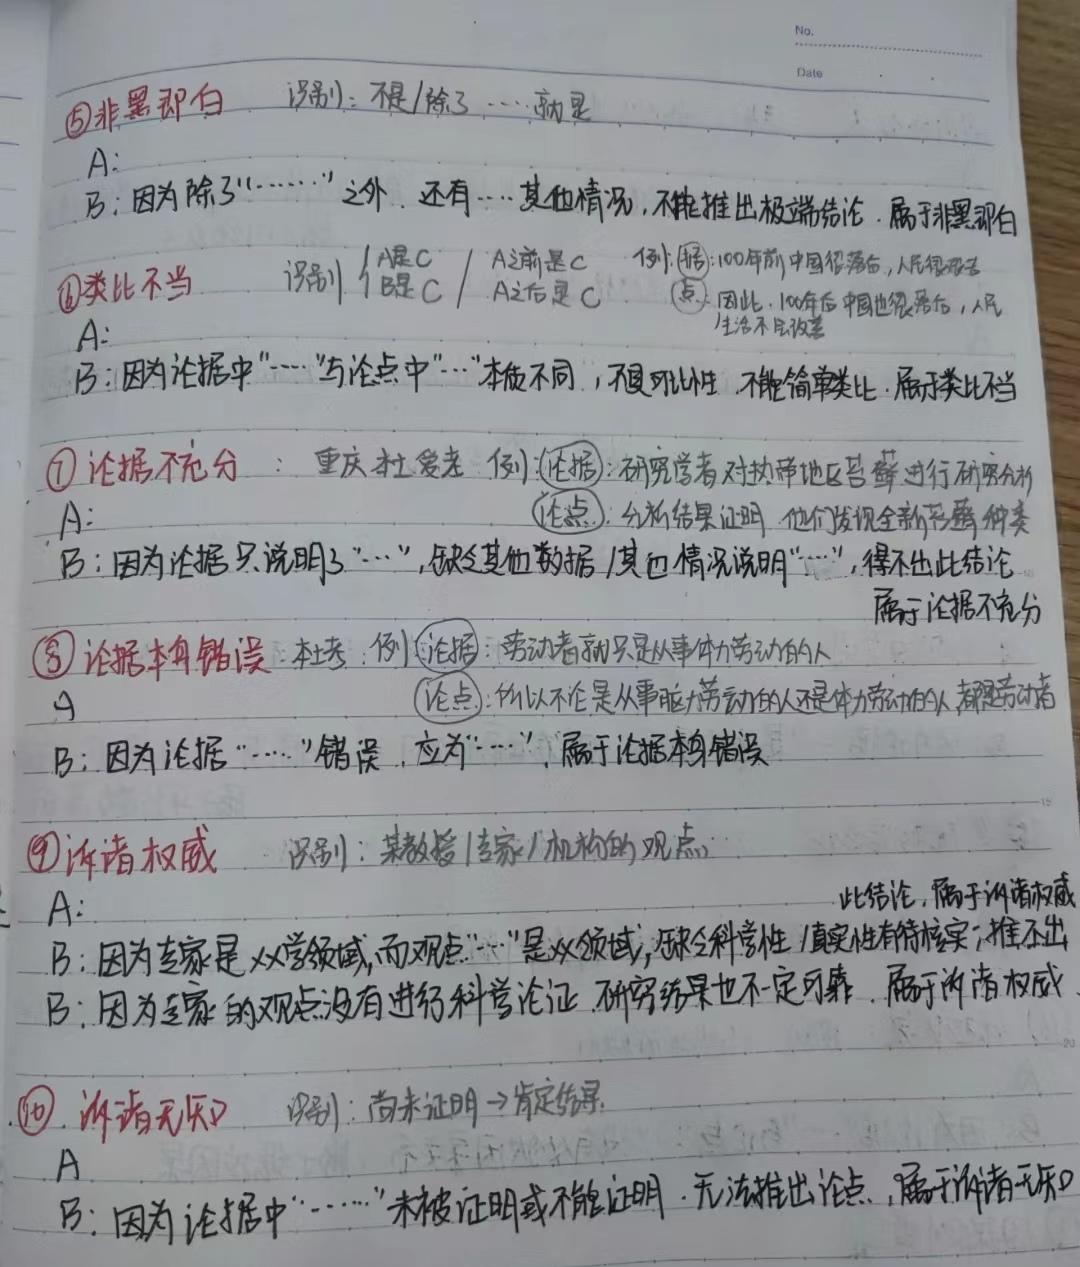 No.
Date
⑤非黑即白 识别：不是/除了……就是
A：
B：因为除了“……”之外，还有……其他情况，不能推出极端结论，属于非黑即白
⑥类比不当 识别 {A是C B是C / A之前是C A之后是C 例：据：100年前中国很落后，人民很艰苦
点：因此，100年后中国也很落后，人民
生活不会改善
A：
B：因为论据中“……”与论点中“…”本质不同，不具可比性，不能简单类比，属于类比不当
⑦论据不充分：重庆本土爱考 例：论据：研究学者对热带地区苔藓进行研究分析
A： 论点：分析结果证明，他们发现全新苔藓种类
B：因为论据只说明了“…”，缺乏其他数据/其他情况说明“……”，得不出此结论
属于论据不充分
⑧论据本身错误：本土考 例：论据：劳动者就只是从事体力劳动的人
A 论点：所以不论是从事脑力劳动的人还是体力劳动的人，都是劳动者
B：因为论据“……”错误，应为“……”，属于论据本身错误
⑨诉诸权威 识别：某教授/专家/机构的观点
A： 此结论，属于诉诸权威
B：因为专家是XX学领域，而观点“…”是XX领域，缺乏科学性/真实性有待核实，推不出
B：因为专家的观点没有进行科学论证，研究结果也不一定可靠，属于诉诸权威
⑩诉诸无知 识别：尚未证明→肯定结果
A
B：因为论据中“……”未被证明或不能证明，无法推出论点，属于诉诸无知